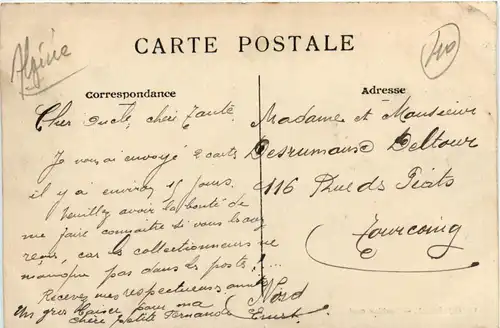 Algérie
40
CARTE POSTALE
Correspondance
Cher oncle, chère Tante
Je vous ai envoyé 2 cartes
il y a environ 15 jours.
Veuillez avoir la bonté de
me faire connaître si vous les avez
reçus, car les collectionneurs ne
manque pas dans les postes !...
Recevez mes respectueuses amitiés
Un gros baiser pour ma
chère petite Fernande Ernest
Adresse
Madame et Monsieur
Desrumaux Deltour
116 Rue des Piats
Tourcoing
(Nord